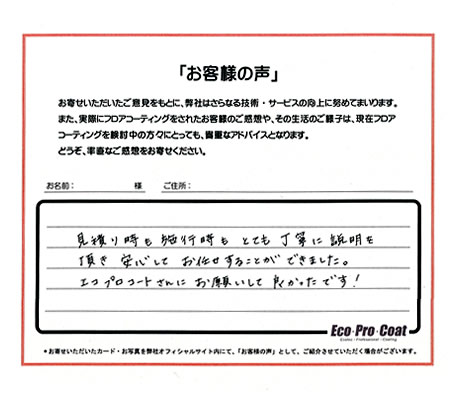 「お客様の声」
お寄せいただいたご意見をもとに、弊社はさらなる技術・サービスの向上に努めてまいります。
また、実際にフロアコーティングをされたお客様のご感想や、その生活のご様子は、現在フロア
コーティングを検討中の方々にとっても、貴重なアドバイスとなります。
どうぞ、率直なご感想をお寄せください。
お名前： 様 ご住所：
見積り時も施行時もとても丁寧に説明を
頂き安心してお任せすることができました。
エコプロコートさんにお願いして良かったです！
Eco・Pro・Coat
Ecoloo・Professional・Coating
＊お寄せいただいたカード・お写真を弊社オフィシャルサイト内にて、「お客様の声」として、ご紹介させていただく場合がございます。